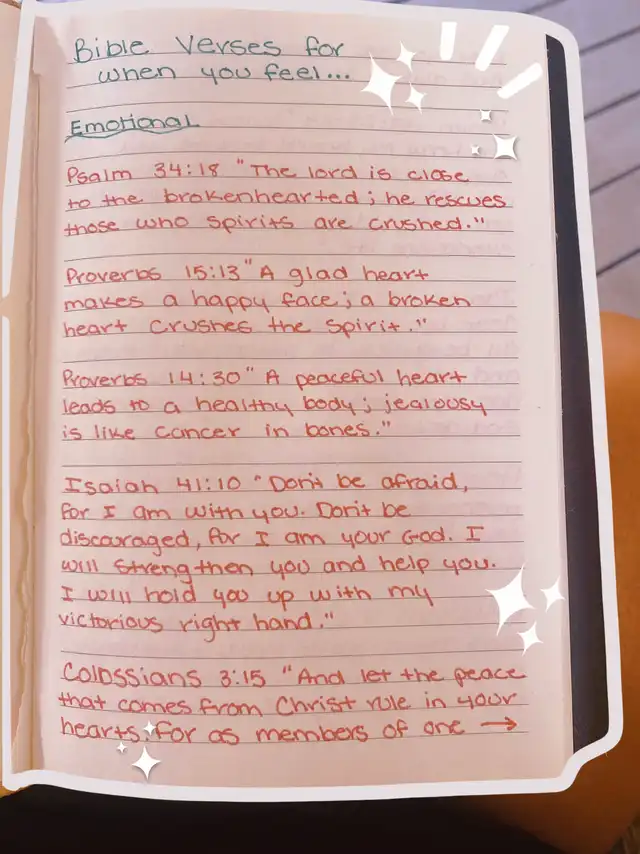 Bible Verses for
when you feel...
Emotional
Psalm 34:18 "The lord is close
to the brokenhearted; he rescues
those who spirits are crushed."
Proverbs 15:13 "A glad heart
makes a happy face; a broken
heart crushes the spirit."
Proverbs 14:30 "A peaceful heart
leads to a healthy body; jealousy
is like cancer in bones."
Isaiah 41:10 "Don't be afraid,
for I am with you. Don't be
discouraged, for I am your God. I
will strengthen you and help you.
I will hold you up with my
victorious right hand."
Colossians 3:15 "And let the peace
that comes from Christ rule in your
hearts. For as members of one →